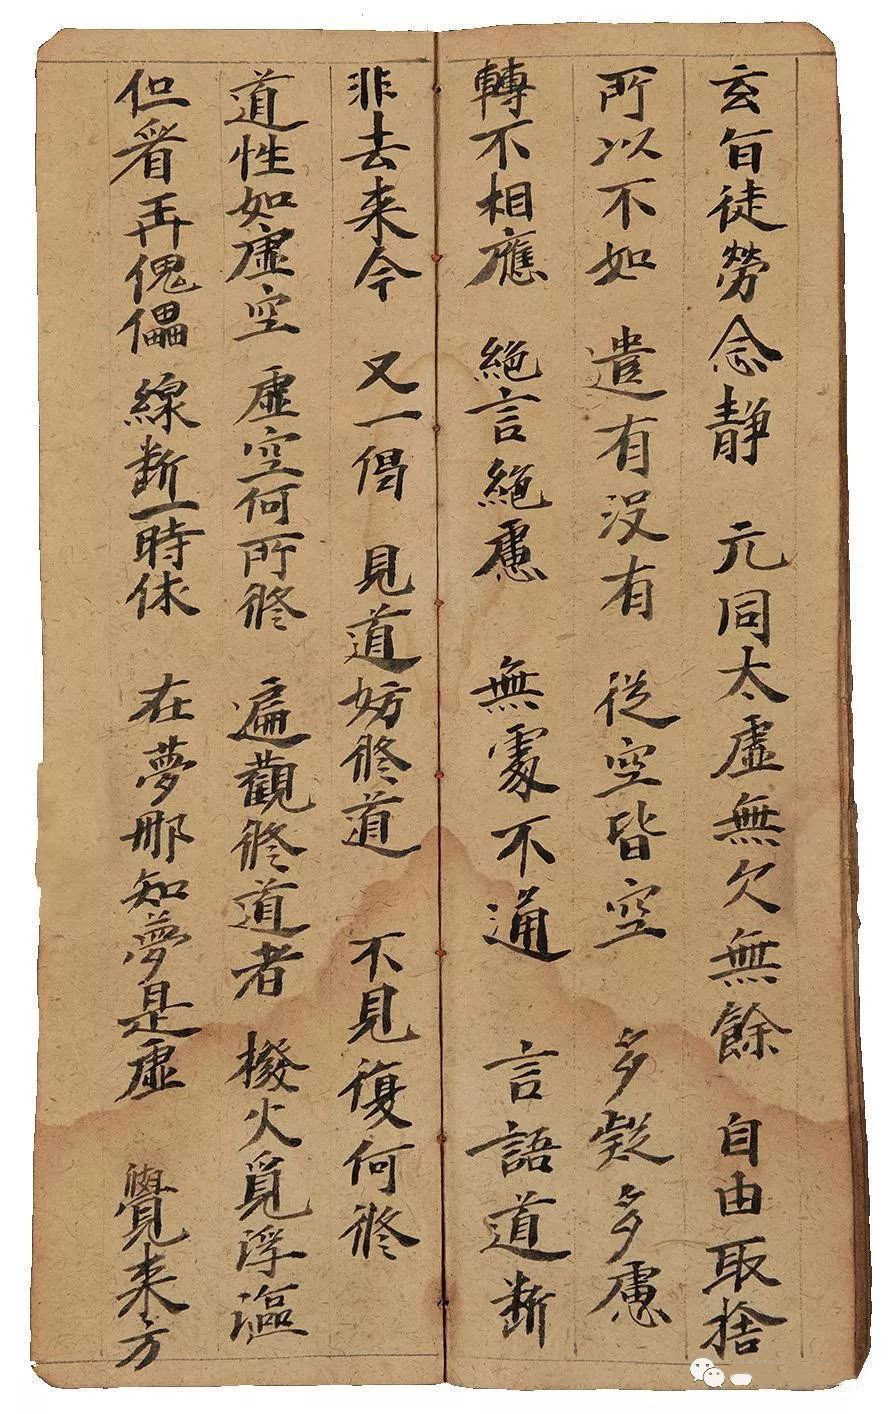 玄旨徒勞念静 元同太虚無欠無餘 自由取捨
所以不如 遣有没有 從空皆空 多疑多慮
轉不相應 絶言絶慮 無處不通 言語道断
非去来今 又一偈 見道妨修道 不見復何修
道性如虚空 虚空何所修 遍觀修道者 橃火覓浮漚
但看弄傀儡 線断一時休 在夢那知夢是虚 覺来方